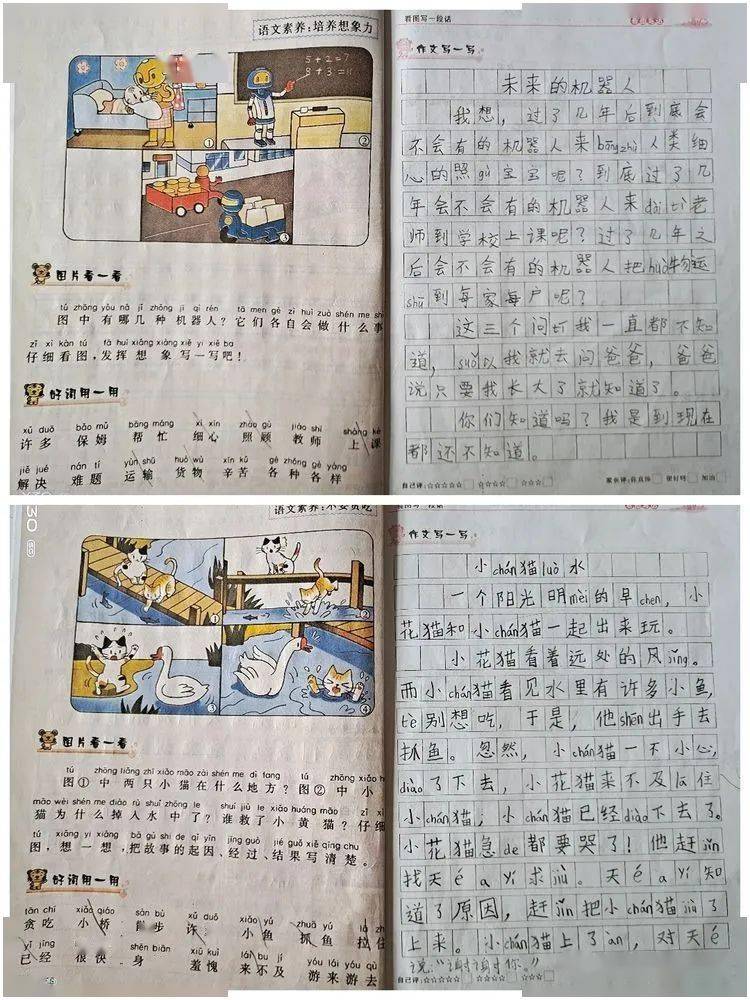 语文素养：培养想象力
5+2=7
8+3=11
①
②
③
图片看一看
tú zhōng yǒu nǎ jǐ zhǒng jī qì rén tā men gè zì huì zuò shén me shì
图中有哪几种机器人？它们各自会做什么事
zǐ xì kàn tú fā huī xiǎng xiàng xiě yi xiě ba
仔细看图，发挥想象写一写吧！
好词用一用
xǔ duō bǎo mǔ bāng máng xì xīn zhào gù jiào shī shàng kè
许多 保姆 帮忙 细心 照顾 教师 上课
jiě jué nán tí yùn shū huò wù xīn kǔ gè zhǒng gè yàng
解决 难题 运输 货物 辛苦 各种各样
看图写一段话
作文写一写
未来的机器人
我想，过了几年后到底会
不会有的机器人来bāngzhù人类细
心的照gù宝宝呢？到底过了几
年会不会有的机器人来dài tì老
师到学校上课呢？过了几年之
后会不会有的机器人把huò物运
shū到每家每户呢？
这三个问tí我一直都不知
道，suǒ以我就去问爸爸，爸爸
说只要我长大了就知道了。
你们知道吗？我是到现在
都还不知道。
自己评：☆☆☆☆☆ ☆☆☆☆ ☆☆☆ 家长评：你真棒 很好呀 加油
语文素养：不要贪吃
①
②
③
④
图片看一看
tú zhōng liǎng zhī xiǎo māo zài shén me dì fang tú zhōng xiǎo h
图①中两只小猫在什么地方？图②中小
māo wèi shén me diào rù shuǐ zhōng le shuí jiù le xiǎo huáng māo zǐ xì
猫为什么掉入水中了？谁救了小黄猫？仔细
tú xiǎng yi xiǎng bǎ gù shi de qǐ yīn jīng guò jié guǒ xiě qīng chu
图，想一想，把故事的起因、经过、结果写清楚。
好词用一用
tān chī xiǎo qiáo sàn bù xǔ duō xiǎo yú zhuā yú lā
贪吃 小桥 散步 许 小鱼 抓鱼 拉住
yǐ jīng shēn biān xiū kuì lái bu jí yóu lái yóu qù
已经 很快 身 羞愧 来不及 游来游去
看图写一段话
作文写一写
小chán猫luò水
一个阳光明mèi的早chen，小
花猫和小chán猫一起出来玩。
小花猫看着远处的风jǐng。
而小chán猫看见水里有许多小鱼，
tè别想吃，于是，他shēn出手去
抓鱼。忽然，小chán猫一不小心，
diào了下去，小花猫来不及lā住
小chán猫，小chán猫已经diào下去了。
小花猫急de都要哭了！他赶jǐn
找天é a yí求jiù。天é a yí知
道了原因，赶jǐn把小chán猫jiù了
上来。小chán猫上了àn，对天é
说：“谢谢你。”
自己评：☆☆☆☆☆ ☆☆☆☆ ☆☆☆